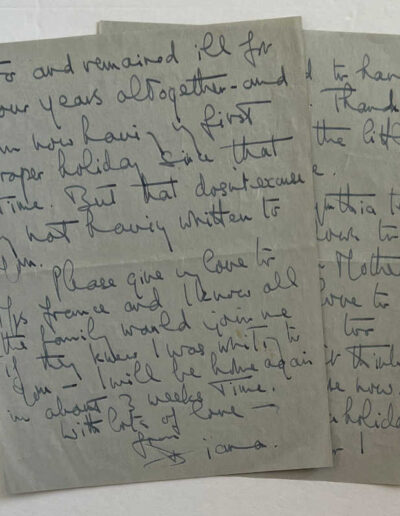 and remained ill for
years altogether - and
now having first
holiday since that
time. But that doesn't excuse
not having written to
Please give my love to
Mrs France and I know all
the family would join me
if they knew I was writing to
you - I will be home again
in about 3 weeks time.
With lots of love -
from
Diana.
to
Thank
the litt
to
Mother
love to
too
think
now.
holida
I